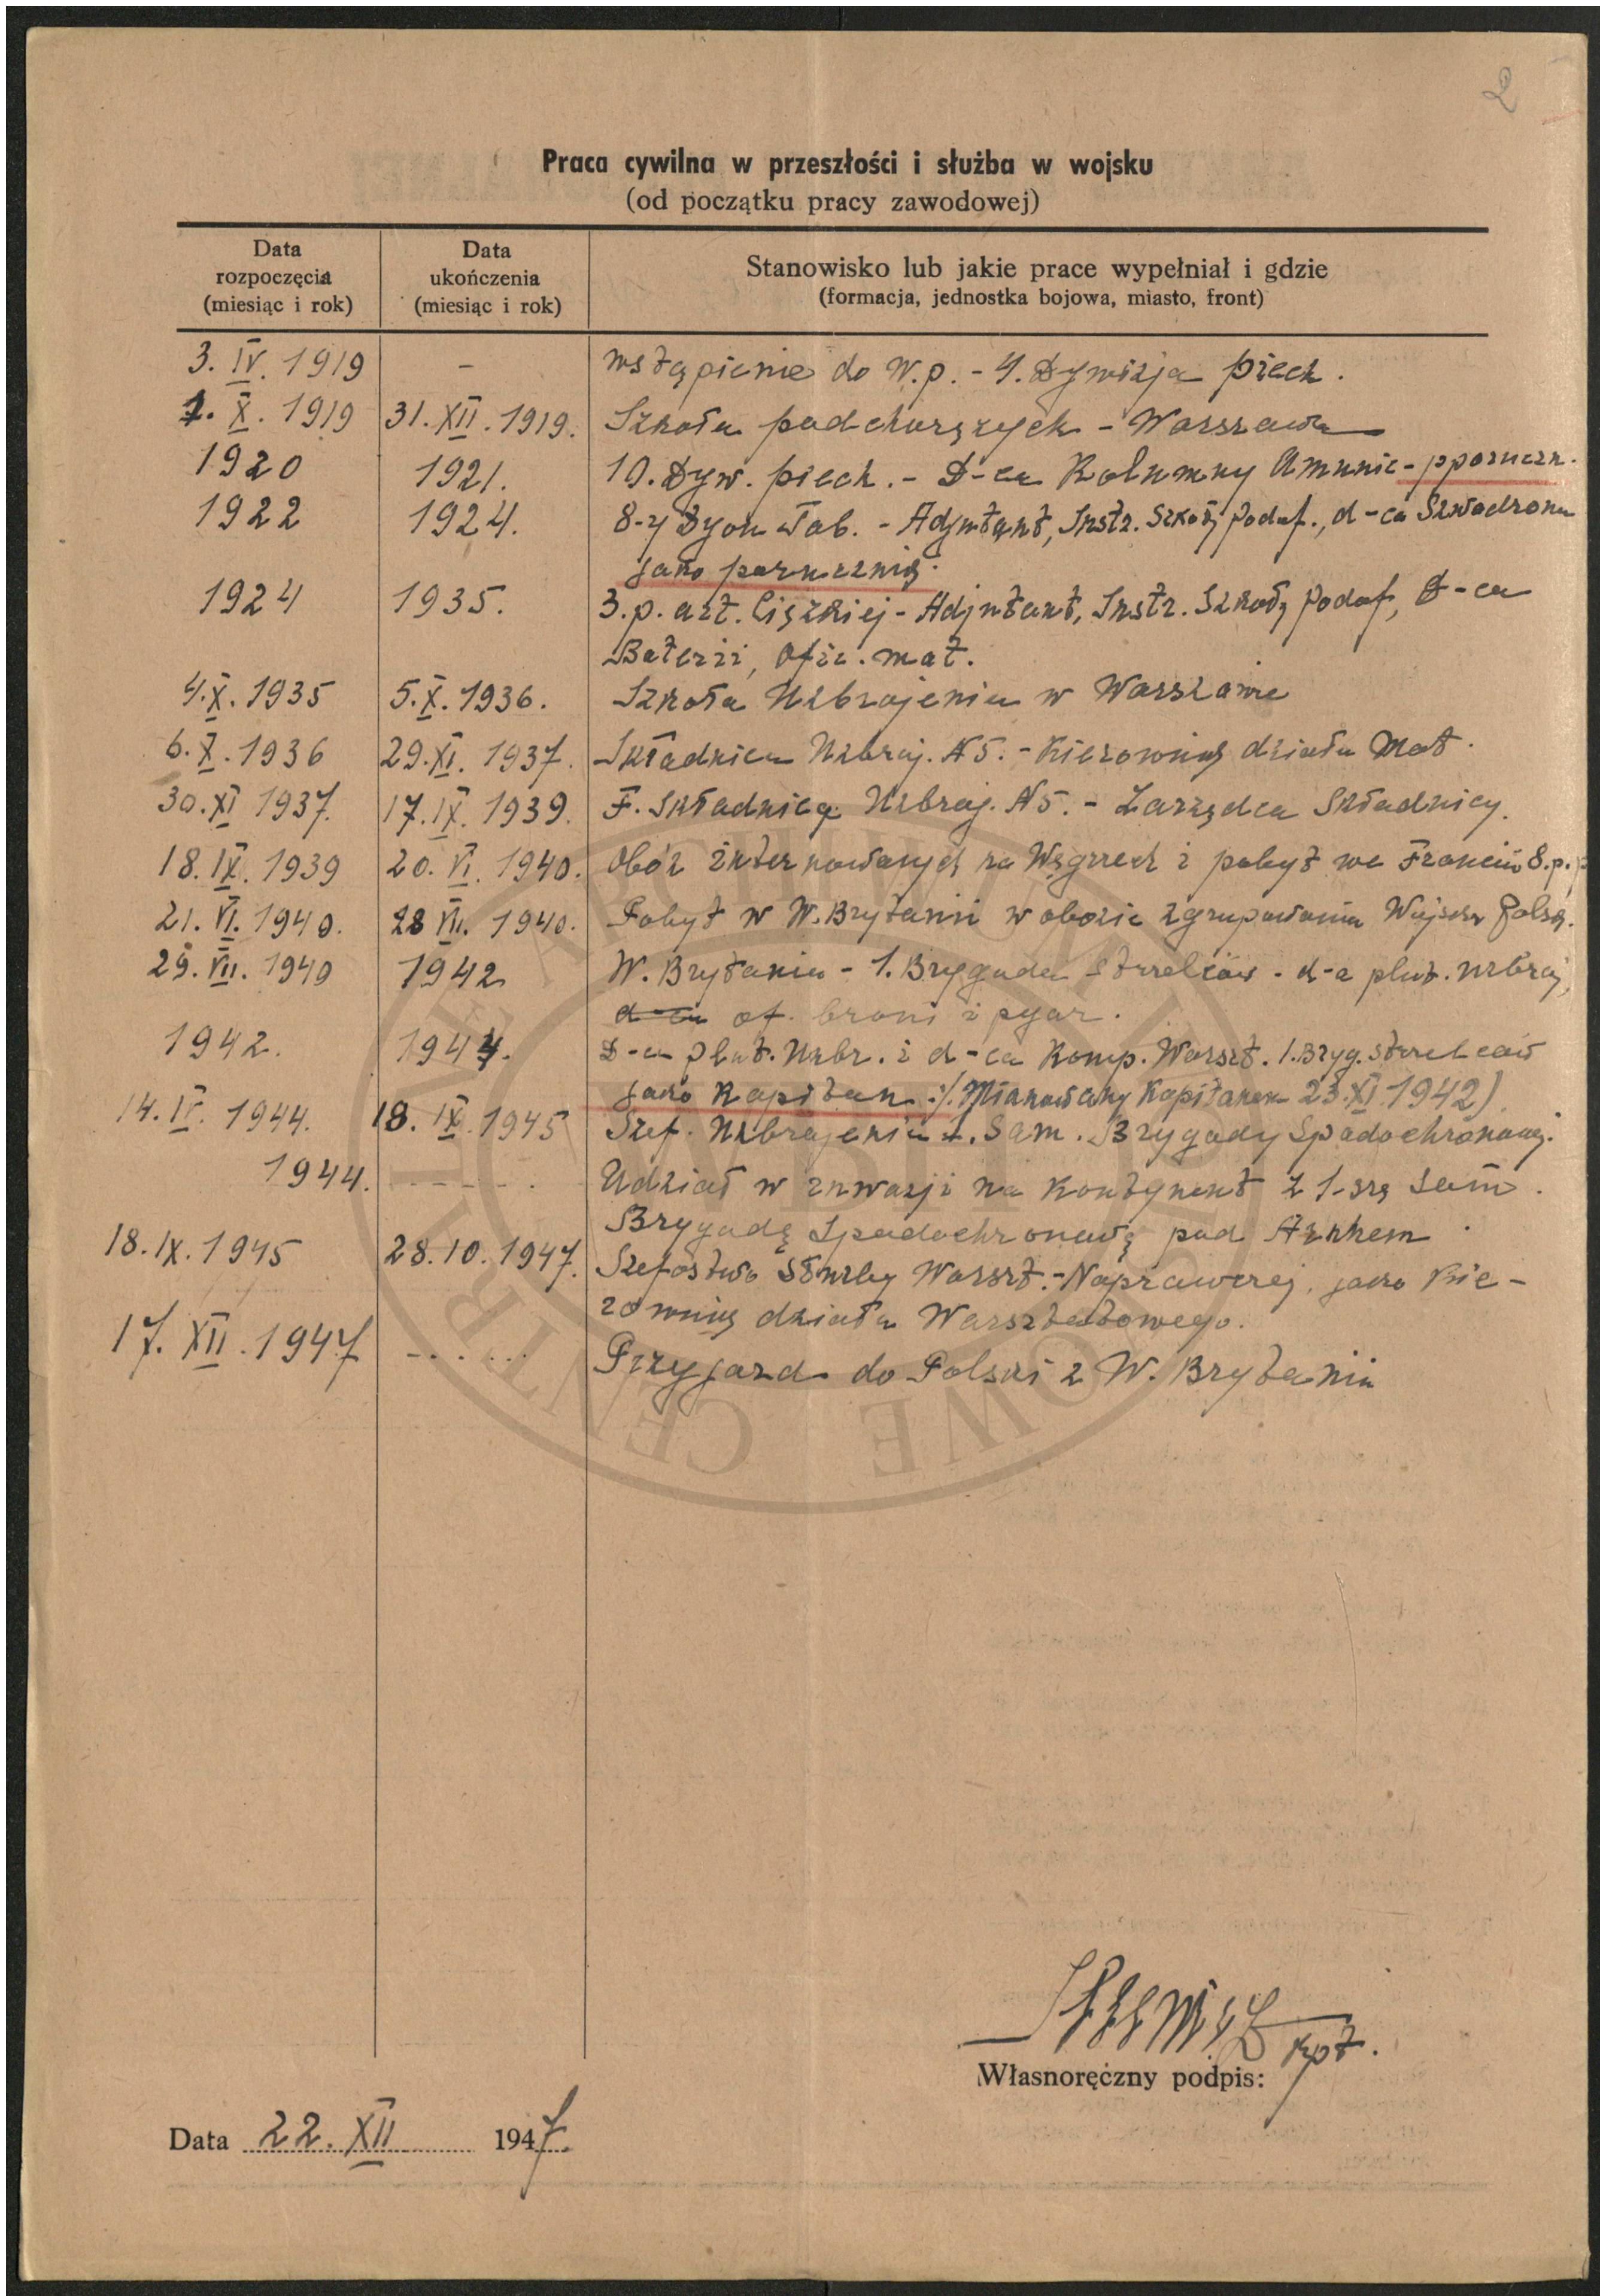 2
Praca cywilna w przeszłości i służba w wojsku
(od początku pracy zawodowej)
Data rozpoczęcia (miesiąc i rok)
Data ukończenia (miesiąc i rok)
Stanowisko lub jakie prace wypełniał i gdzie
(formacja, jednostka bojowa, miasto, front)
3. IV. 1919 - wstąpienie do W.p. - 4. Dywizja piech.
1. X. 1919 31. XII. 1919. Szkoła podchorążych - Warszawa
1920 1921. 10. Dyw. piech. - D-ca Kolumny Amunic - pporuczn.
1922 1924. 8-y Dyon Tab. - Adjutant, Instr. Szkoły Podof., d-ca Szwadronu
jako porucznik.
1924 1935. 3. p. art. Ciężkiej - Adjutant, Instr. Szkoły Podof, D-ca
Baterii, Ofic. mat.
4. X. 1935 5. X. 1936. Szkoła Uzbrojenia w Warszawie
6. X. 1936 29. XI. 1937. Składnica Uzbroj. N5. - Kierownik działu Mat.
30. XI 1937. 17. IX. 1939. F. Składnica Uzbroj. N5. - Zarządca Składnicy.
18. IX. 1939 20. VI. 1940. Obóz internowanych na Węgrzech i pobyt we Francii 8.p.
21. VI. 1940. 28 VII. 1940. Pobyt w W. Brytanii w obozie zgrupowania Wojska Polsk.
29. VII. 1940 1942 W. Brytania - 1. Brygada strzelców - d-a plut. uzbroj,
d-ca of. broni i pgaz.
1942. 1944. D-ca plut. Uzbr. i d-ca Komp. Warszt. 1. Bryg. strzelców
jako Kapitan ./. Mianowany Kapitanem 23. XI 1942)
14. IV. 1944. 18. IX. 1945 Szef. Uzbrojenia 1. Sam. Brygady Spadochronowej.
1944. - - - - - . Udział w inwazji na Kontynent z 1-szą Sam.
Brygadą Spadochronową pod Arnhem.
18. IX. 1945 28. 10. 1947. Szefostwo Służby Warszt.-Naprawczej, jako Kie-
rownik działu Warsztatowego.
17. XII. 1947 - . . . . . Przyjazd do Polski z W. Brytanii
kpt.
Własnoręczny podpis:
Data 22. XII 1947.
CENTRALNE ARCHIWUM WOJSKOWE
WBH